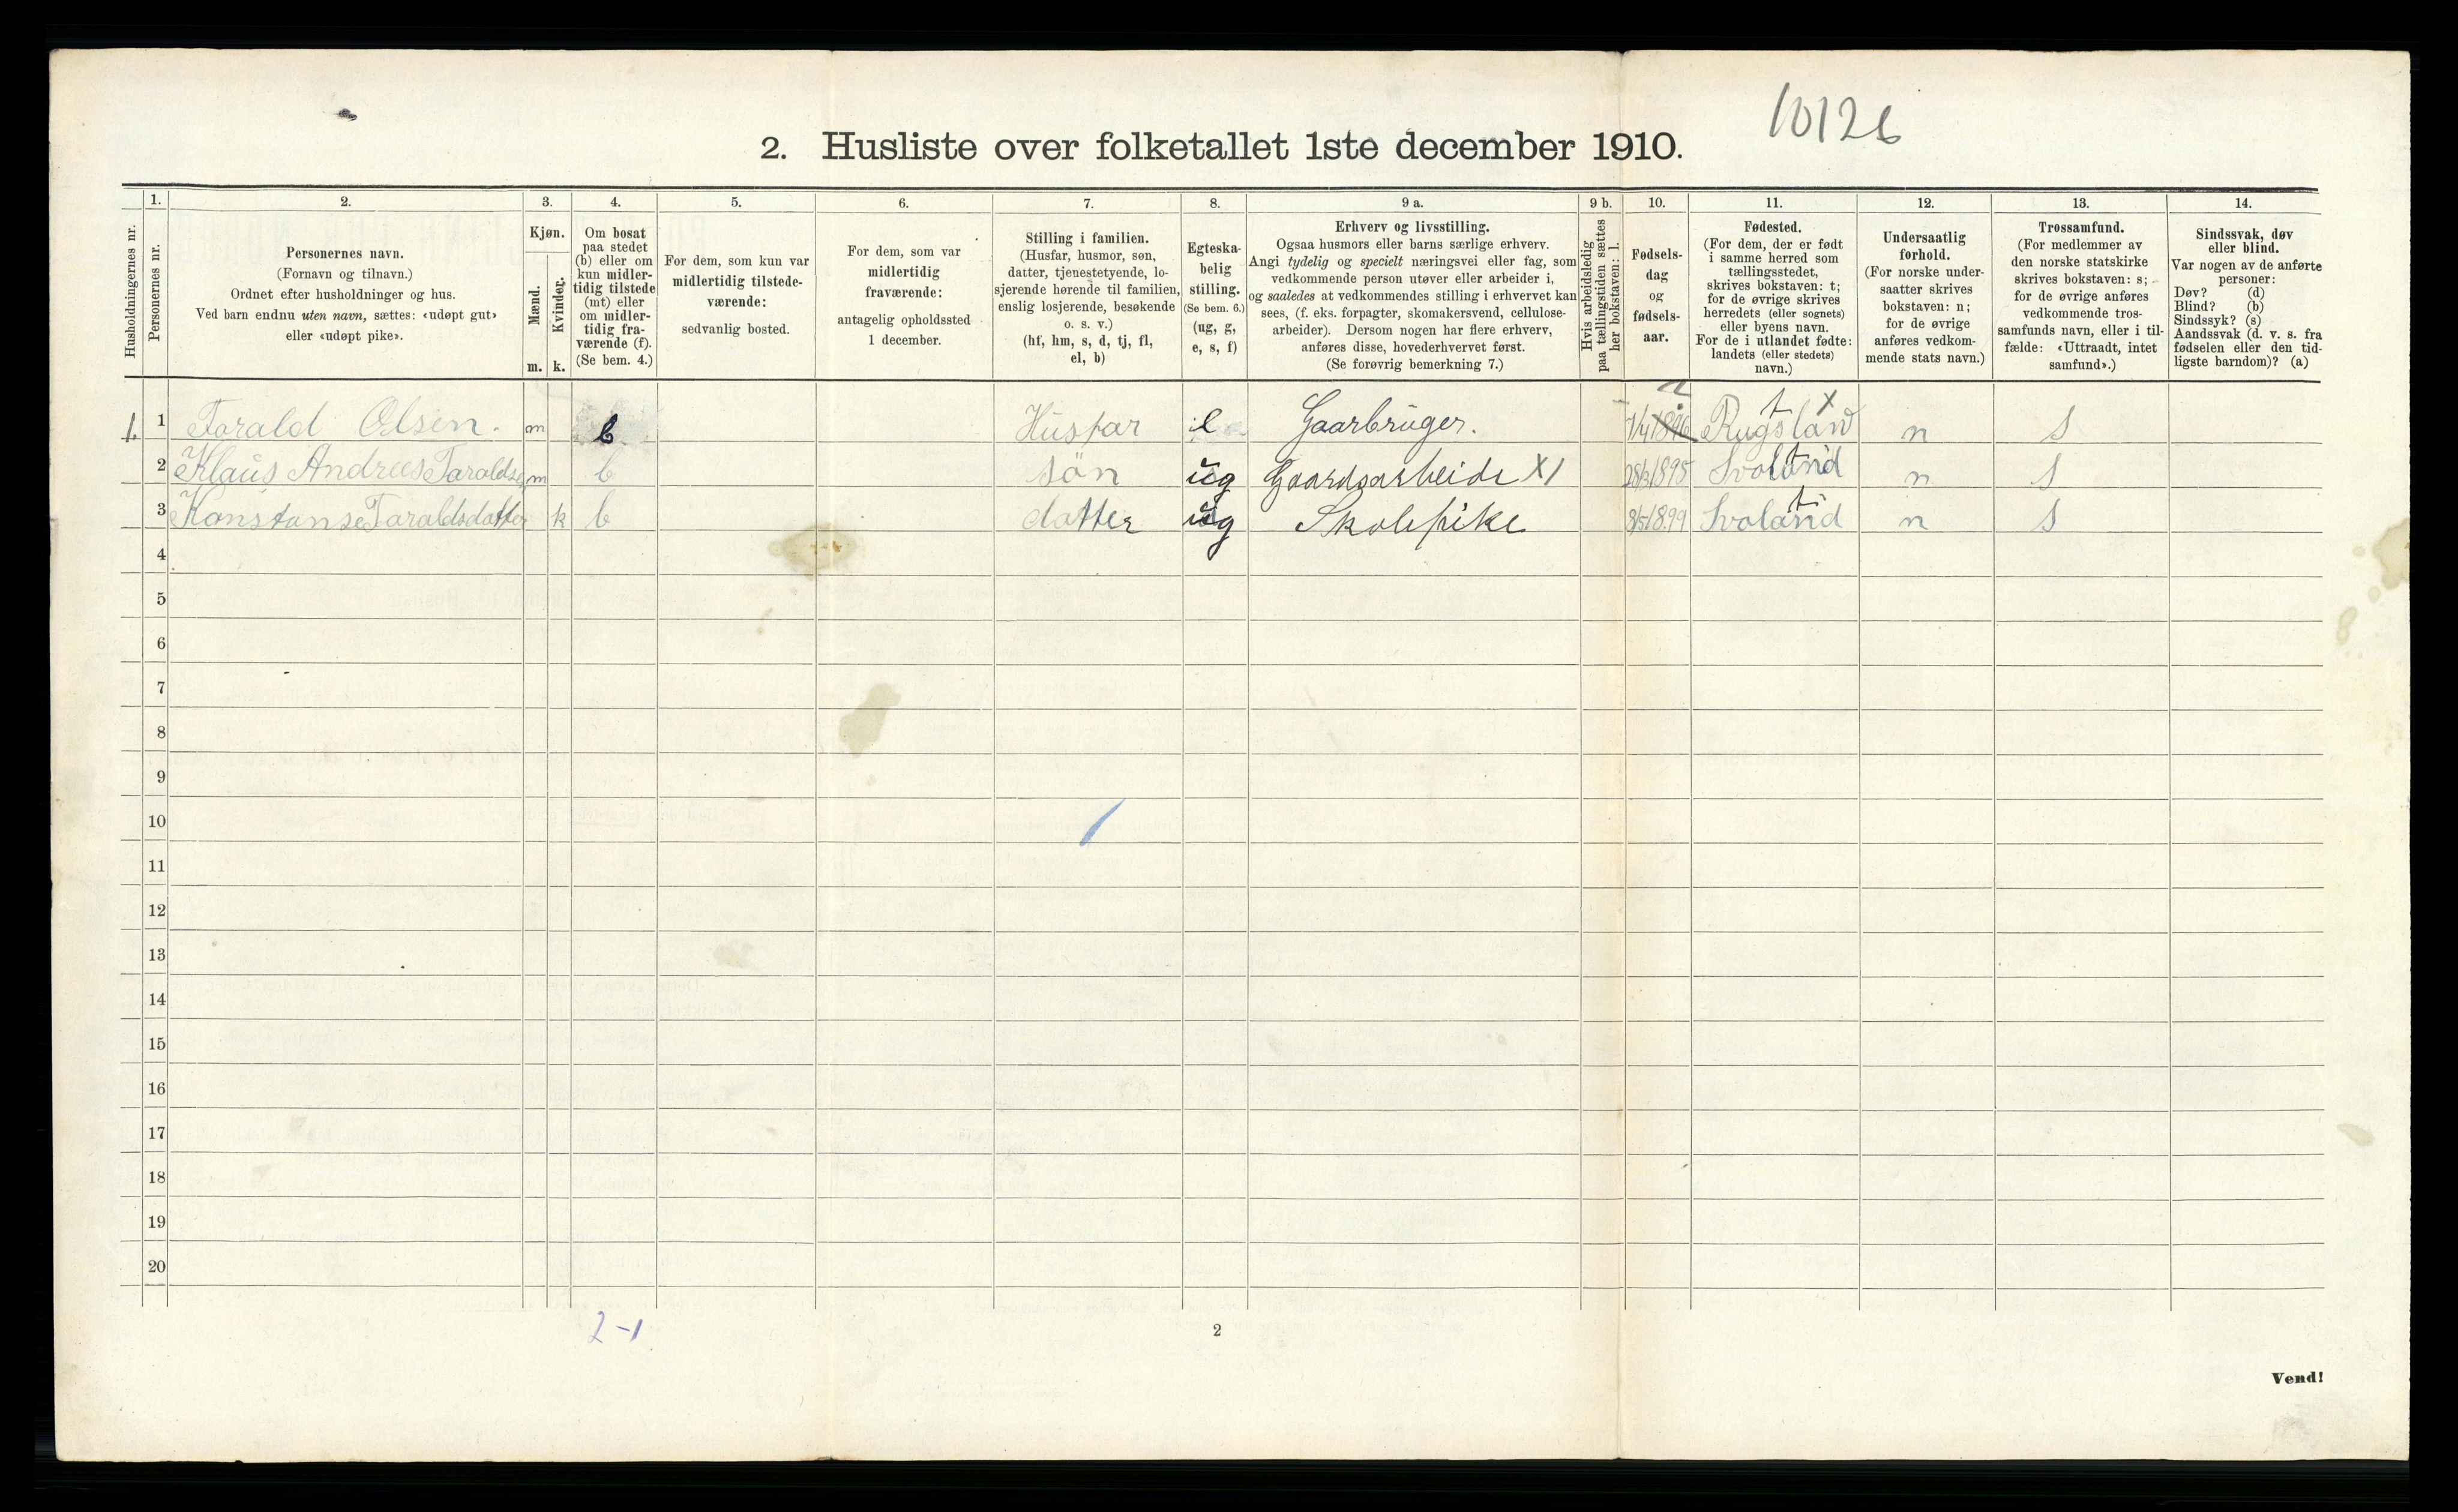 10126
2. Husliste over folketallet 1ste december 1910.
Husholdningernes nr.
1. Personernes nr.
2. Personernes navn.
(Fornavn og tilnavn.)
Ordnet efter husholdninger og hus.
Ved barn endnu uten navn, sættes: «udøpt gut»
eller «udøpt pike».
3. Kjøn.
Mænd. m.
Kvinder. k.
4. Om bosat
paa stedet
(b) eller om
kun midler-
tidig tilstede
(mt) eller
om midler-
tidig fra-
værende (f).
(Se bem. 4.)
5. For dem, som kun var
midlertidig tilstede-
værende:
sedvanlig bosted.
6. For dem, som var
midlertidig
fraværende:
antagelig opholdssted
1 december.
7. Stilling i familien.
(Husfar, husmor, søn,
datter, tjenestetyende, lo-
sjerende hørende til familien,
enslig losjerende, besøkende
o. s. v.)
(hf, hm, s, d, tj, fl,
el, b)
8. Egteska-
belig
stilling.
(Se bem. 6.)
(ug, g,
e, s, f)
9 a. Erhverv og livsstilling.
Ogsaa husmors eller barns særlige erhverv.
Angi tydelig og specielt næringsvei eller fag, som
vedkommende person utøver eller arbeider i,
og saaledes at vedkommendes stilling i erhvervet kan
sees, (f. eks. forpagter, skomakersvend, cellulose-
arbeider). Dersom nogen har flere erhverv,
anføres disse, hovederhvervet først.
(Se forøvrig bemerkning 7.)
9 b. Hvis arbeidsledig
paa tællingstiden sættes
her bokstaven: l.
10. Fødsels-
dag
og
fødsels-
aar.
11. Fødested.
(For dem, der er født
i samme herred som
tællingsstedet,
skrives bokstaven: t;
for de øvrige skrives
herredets (eller sognets)
eller byens navn.
For de i utlandet fødte:
landets (eller stedets)
navn.)
12. Undersaatlig
forhold.
(For norske under-
saatter skrives
bokstaven: n;
for de øvrige
anføres vedkom-
mende stats navn.)
13. Trossamfund.
(For medlemmer av
den norske statskirke
skrives bokstaven: s;
for de øvrige anføres
vedkommende tros-
samfunds navn, eller i til-
fælde: «Uttraadt, intet
samfund».)
14. Sindssvak, døv
eller blind.
Var nogen av de anførte
personer:
Døv? (d)
Blind? (b)
Sindssyk? (s)
Aandssvak (d. v. s. fra
fødselen eller den tid-
ligste barndom)? (a)
1. 1 Torald Olsen. m b Husfar e Gaarbruger. Rugsland t x n s
2 Klaus Andreas Taraldsen m b søn ug Gaardsarbeide X1 28/3 1895 Svoland t n s
3 Konstanse Taraldsdatter k b datter ug Skolepike 3/5 1899 Svoland t n s
4
5
6
7
8
9
10
11
12
13
14
15
16
17
18
19
20
2-1
2
Vend!